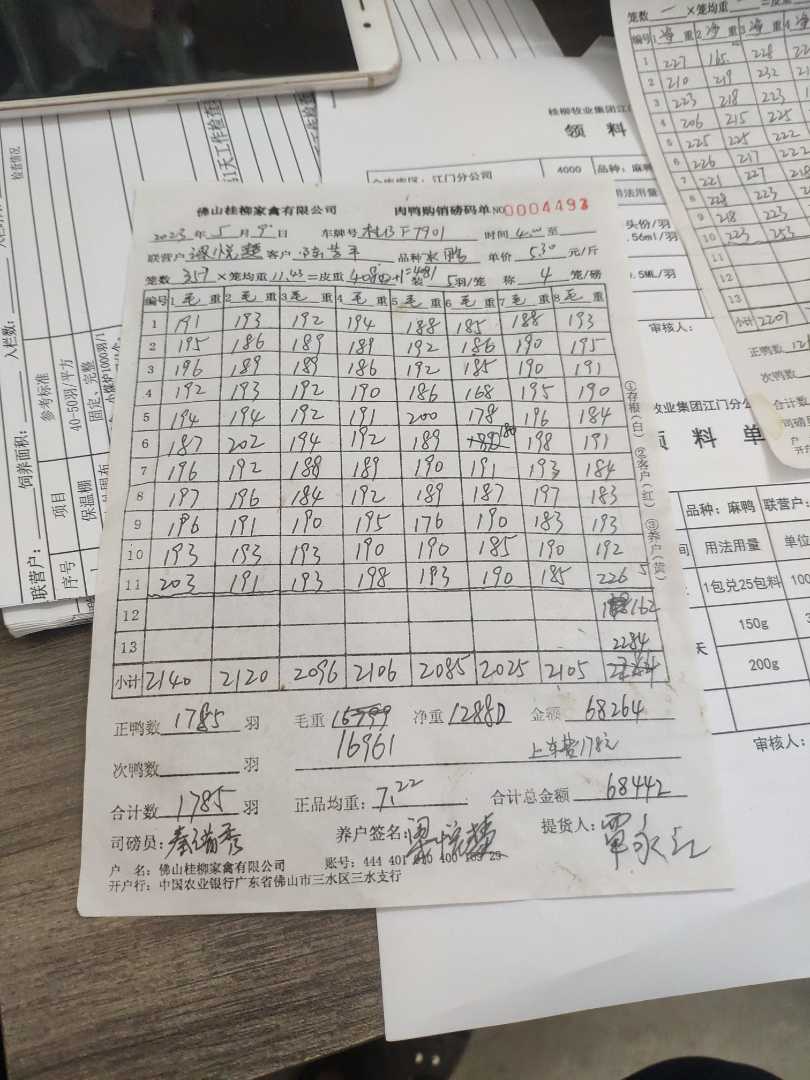 佛山桂柳家禽有限公司 肉鸭购销磅码单 NO 0004493
2023年5月9日 车牌号 桂 F7901 时间 4:00 至
联营户 梁悦 客户 品种 水鸭 单价 5.30 元/斤
笼数 357 ×笼均重 11.43 =皮重 4080+1=4081 装 5羽/笼 称 4 笼/磅
编号 1毛重 2毛重 3毛重 4毛重 5毛重 6毛重 7毛重 8毛重
1 191 193 192 194 188 185 188 193
2 195 186 189 189 192 186 190 195
3 196 189 189 186 192 185 190 191
4 192 193 192 190 186 168 195 190
5 194 194 192 191 200 178 196 184
6 187 202 194 192 189 180 198 191
7 196 192 188 189 190 191 193 184
8 197 196 184 192 189 187 197 183
9 196 191 190 195 176 190 183 193
10 193 193 193 190 190 185 190 192
11 203 191 193 198 193 190 185 226 5
12 162
13 2284
小计 2140 2120 2096 2106 2085 2025 2105
①存根(白) ②客户(红) ③养户(黄)
正鸭数 1785 羽 毛重 16799 净重 12880 金额 68264
16961 上车费178元
次鸭数 羽
合计数 1785 羽 正品均重: 7.22 合计总金额 68442
司磅员: 养户签名: 梁悦 提货人: 覃永江
户 名: 佛山桂柳家禽有限公司 账号: 444 401 010 400 169 29
开户行: 中国农业银行广东省佛山市三水区三水支行
桂柳牧业集团江门
领 料
江门分公司 4000 品种: 麻鸭
用法用量
头份/羽
.56ml/羽
.5ML/羽
审核人:
笼数 ×笼均重 =皮重
编号 1净重 2净重 3净重 4
1 227 165 228
2 210 219 232
3 223 218 223
4 206 215 225
5 225 225 222
6 226 217 222
7 221 227 218
8 228 223
9 218 223
10 223 253
11
12
13
小计 2207
正鸭数
次鸭数
合计数
司磅员
牧业集团江门分公
领 料 单
品种: 麻鸭 联营户:
用法用量 单位
1包兑25包料 100
天 150g
200g
审核人:
入栏数:
饲养面积:
联营户:
序号 项目 参考标准
保温棚 40-50羽/平方
固定、完整
检查情况
天工作检查